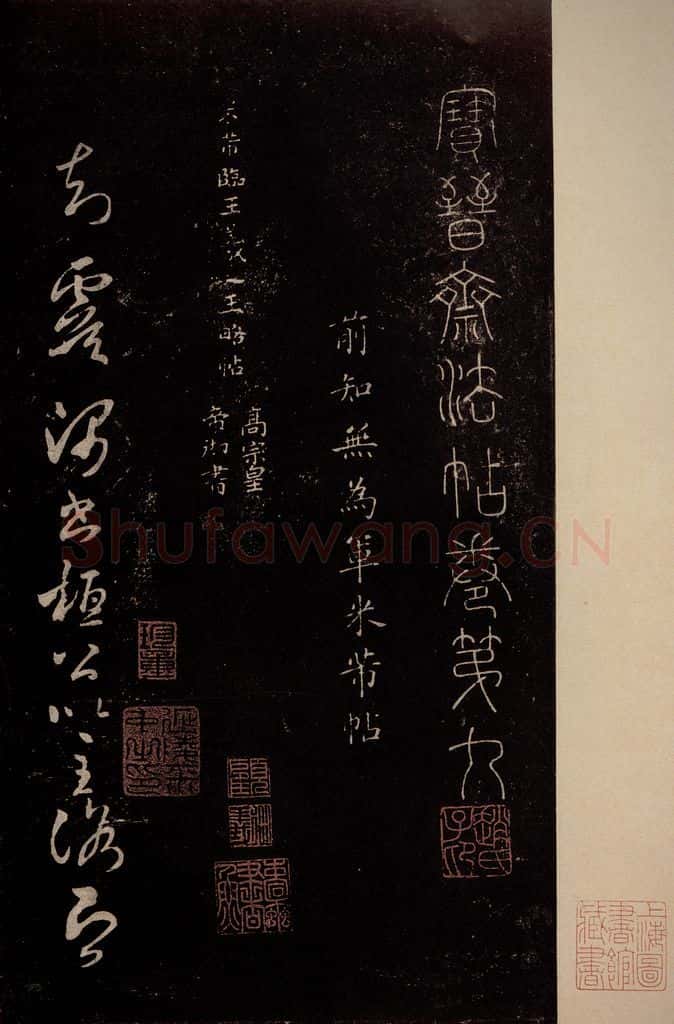 寶晉齋法帖卷第九
前知無為軍米芾帖
米芾臨王羲之王略帖
高宗皇
帝御書
知虞帥書桓公以至洛即
趙氏子
上海圖書館藏書
Shufawang.CN